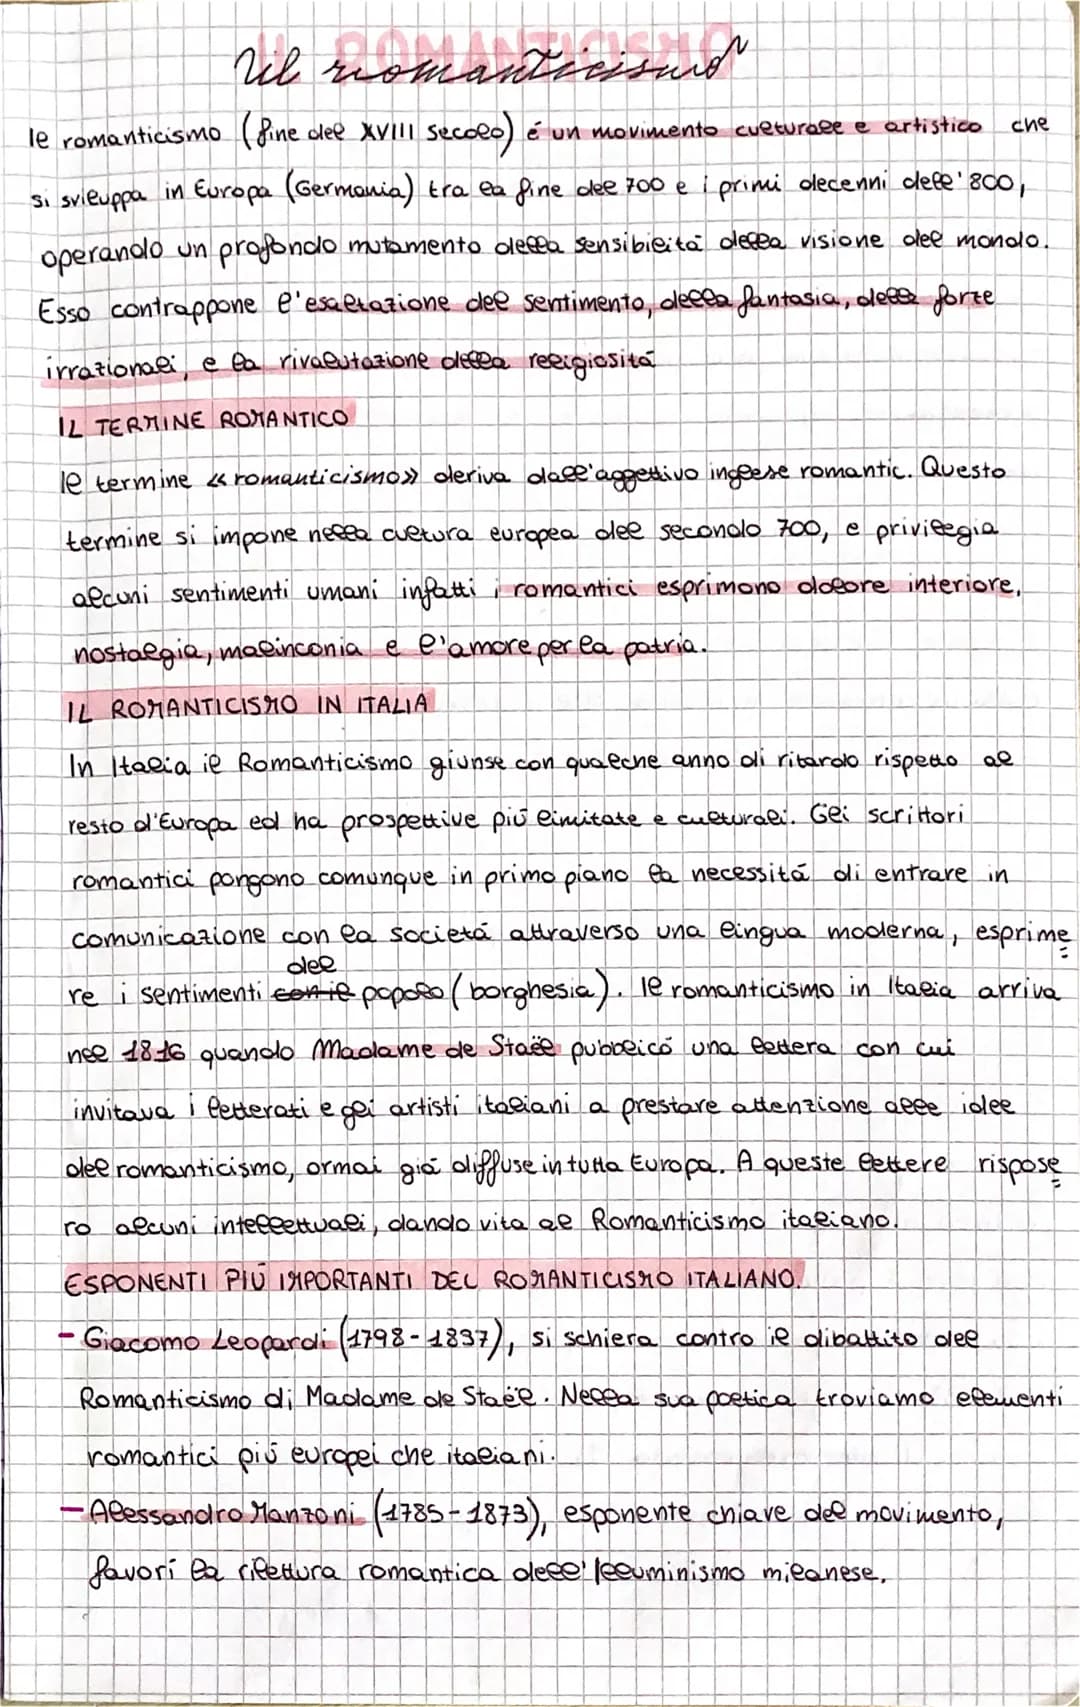 Il romanticismo
Il romanticismo (fine del XVIII secolo) é un movimento culturale e artistico che
si sviluppa in Europa (Germania) tra la fine del 700 e i primi decenni dell'800,
operando un profondo mutamento della sensibilitá della visione del mondo.
Esso contrappone l'esaltazione del sentimento, della fantasia, delle forze
irrazionali, e la rivalutazione della religiositá
IL TERMINE ROMANTICO
Il termine «romanticismo» deriva dall'aggettivo inglese romantic. Questo
termine si impone nella cultura europea del secondo 700, e privilegia
alcuni sentimenti umani infatti i romantici esprimono dolore interiore,
nostalgia, malinconia e l'amore per la patria.
IL ROMANTICISMO IN ITALIA
In Italia il Romanticismo giunse con qualche anno di ritardo rispetto al
resto d'Europa ed ha prospettive piú limitate e culturali. Gli scrittori
romantici pongono comunque in primo piano la necessitá di entrare in
comunicazione con la societá attraverso una lingua moderna, esprime
del
re i sentimenti con il popolo (borghesia). Il romanticismo in Italia arriva
nel 1816 quando Madame de Staël pubblicó una lettera con cui
invitava i letterati e gli artisti italiani a prestare attenzione alle idee
del romanticismo, ormai giá diffuse in tutta Europa. A queste lettere rispose
ro alcuni intellettuali, dando vita al Romanticismo italiano.
ESPONENTI PIÚ IMPORTANTI DEL ROMANTICISMO ITALIANO.
- Giacomo Leopardi (1798-1837), si schiera contro il dibattito del
Romanticismo di Madame de Staël. Nella sua poetica troviamo elementi
romantici piú europei che italiani.
- Alessandro Manzoni (1785-1873), esponente chiave del movimento,
favorí la rilettura romantica dell'Illuminismo milanese.